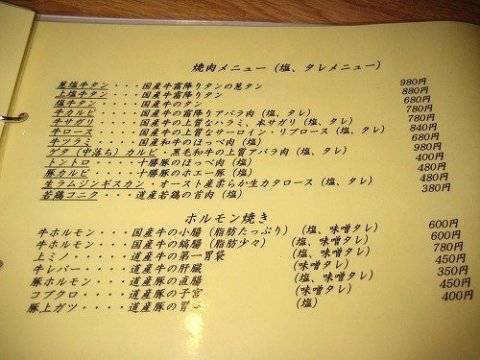 焼肉メニュー(塩、タレメニュー)
葱塩牛タン・・・国産牛霜降りタンの葱タン 980円
上塩牛タン・・・国産牛霜降りタン 880円
塩牛タン・・・・国産牛のタン 680円
牛カルビ・・・・国産牛の霜降りアバラ肉(塩、タレ) 780円
牛サガリ・・・・国産牛の上質なハラミ、本サガリ(塩、タレ) 780円
牛ロース・・・・国産牛の上質なサーロイン・リブロース(塩、タレ) 840円
牛ツラミ・・・・国産和牛のほっぺ肉(塩) 680円
ゲタ(中落ち)カルビ・黒毛和牛の上質アバラ肉(塩、タレ) 400円
トントロ・・・・十勝豚のほっぺ肉(塩) 480円
豚カルビ・・・・十勝豚のホエー豚(塩) 480円
生ラムジンギスカン・オースト産柔らか生カタロース(塩、タレ) 480円
若鶏コニク・・・道産若鶏の首肉(塩) 380円
ホルモン焼き
牛ホルモン・・・国産牛の小腸(脂肪たっぷり)(塩、味噌タレ) 600円
牛ホルモン・・・国産牛の縞腸(脂肪少々)(塩、味噌タレ) 600円
上ミノ・・・・・道産牛の第一胃袋(塩、味噌タレ) 780円
牛レバー・・・・道産牛の肝臓(味噌タレ) 450円
豚ホルモン・・・道産豚の直腸(塩、味噌タレ) 350円
コブクロ・・・・道産豚の子宮(味噌タレ) 450円
豚上ガツ・・・・道産豚の胃(塩) 400円